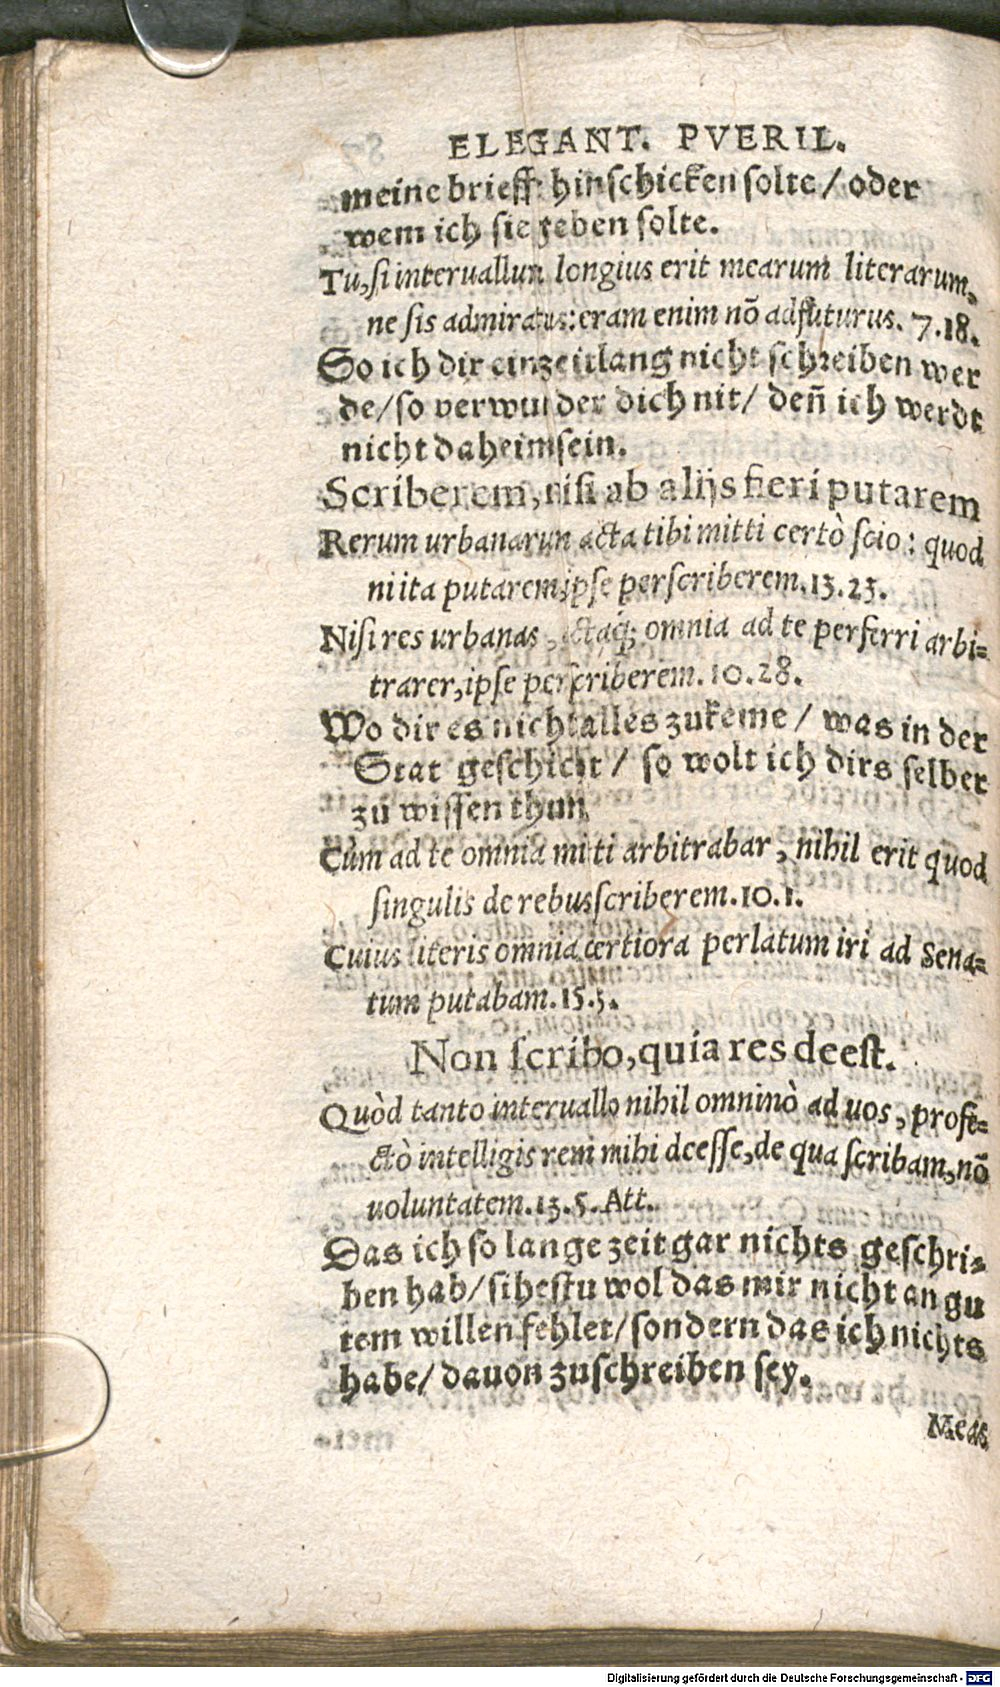 ELEGANT. PVERIL.
meine brieff hinschicken solte / oder
wem ich sie geben solte.
Tu, si interuallum longius erit mearum literarum,
ne sis admiratus: eram enim nō adfuturus. 7.18.
So ich dir ein zeitlang nicht schreiben wer
de/ so verwunder dich nit/ deñ ich werdt
nicht daheim sein.
Scriberem, nisi ab alijs fieri putarem
Rerum urbanarum acta tibi mitti certò scio: quod
ni ita putarem, ipse perscriberem. 13.23.
Nisi res urbanas, actaq́; omnia ad te perferri arbi-
trarer, ipse perscriberem. 10.28.
Wo dir es nicht alles zukeme / was in der
Stat geschicht / so wolt ich dirs selber
zu wissen thun.
Cùm ad te omnia mitti arbitrabar, nihil erit quod
singulis de rebus scriberem. 10.1.
Cuius literis omnia certiora perlatum iri ad Sena-
tum putabam. 15.3.
Non scribo, quia res deest.
Quòd tanto interuallo nihil omninò ad uos, profe-
ctò intelligis rem mihi deesse, de qua scribam, nō
uoluntatem. 13.5. Att.
Das ich so lange zeit gar nichts geschri-
ben hab/ sihestu wol das mir nicht an gu
tem willen fehlet/ sondern das ich nichts
habe/ dauon zuschreiben sey.
Meas
Digitalisierung gefördert durch die Deutsche Forschungsgemeinschaft - DFG